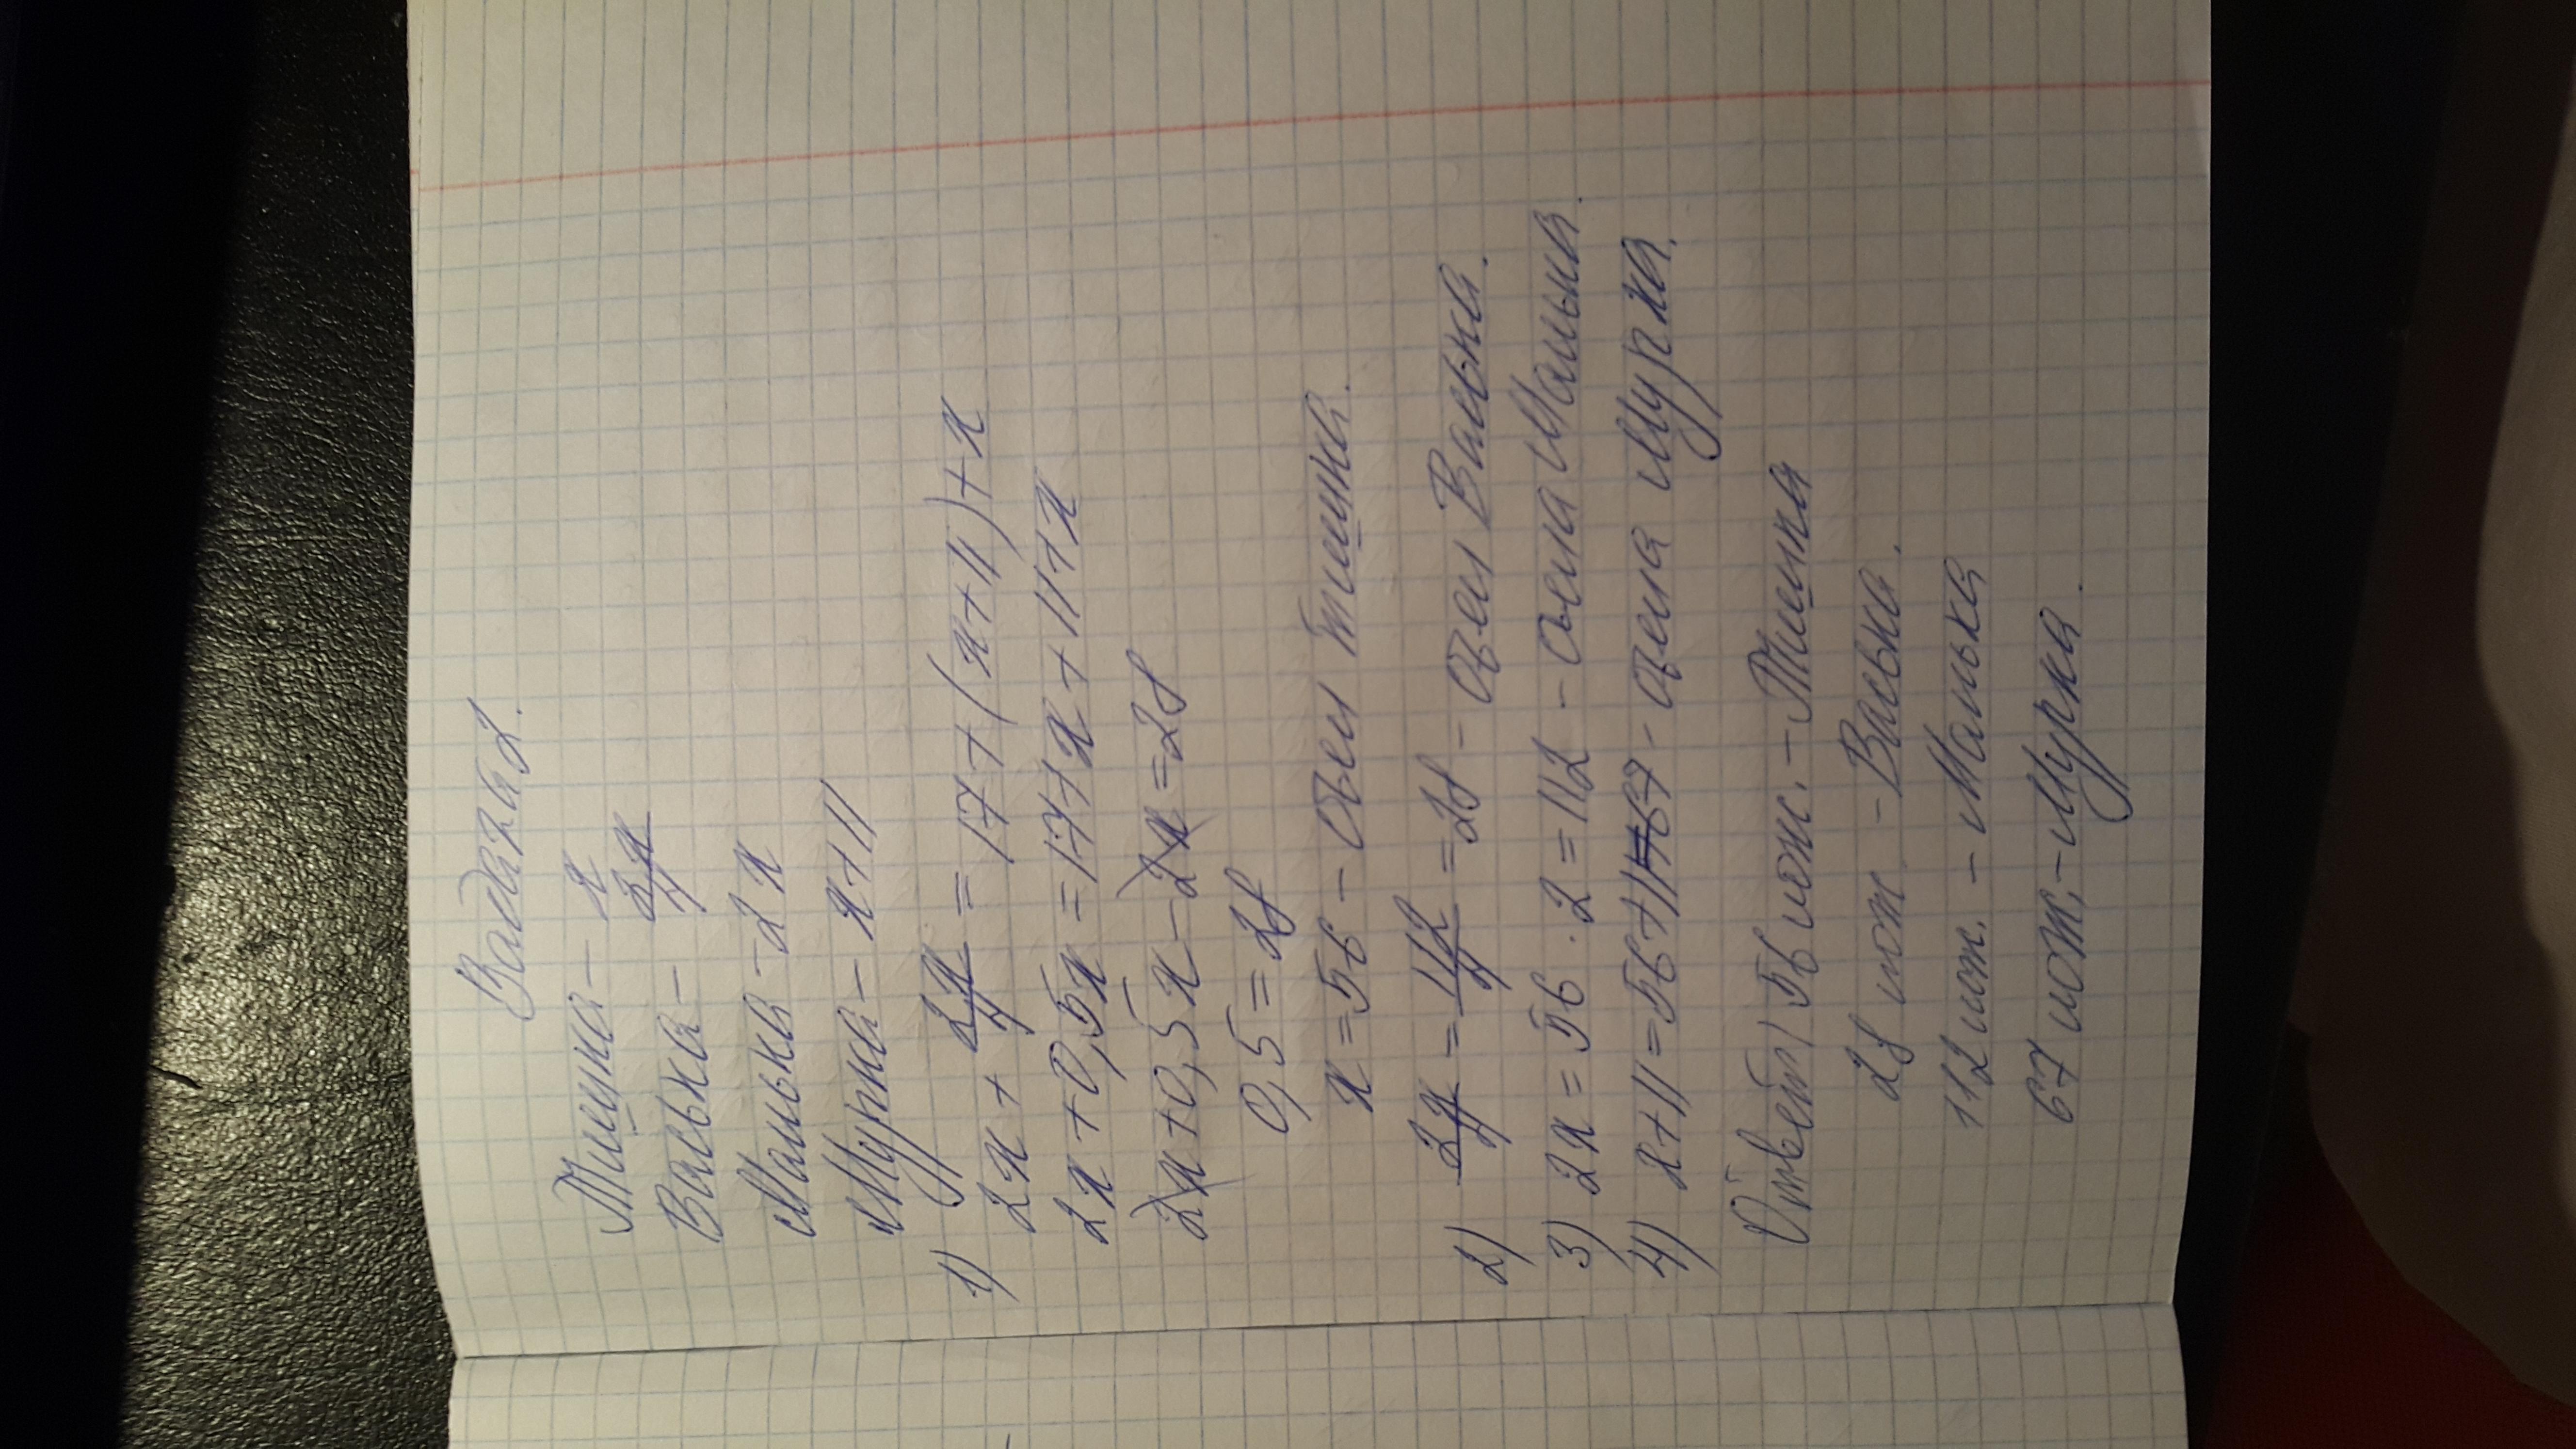 Задача 2.
Тишка - x
Васька - 2x/4
Манька - 2x
Мурка - x+11
1) 2x + 2x/4 = 17 + (x+11) + x
2x + 0,5x = 17 + x + 11 + x
2x + 0,5x - 2x = 28
0,5 = 28
x = 56 - съел Тишка.
2) 2x/4 = 112/4 = 28 - съел Васька.
3) 2x = 56 · 2 = 112 - съела Манька.
4) x + 11 = 56 + 11 = 67 - съела Мурка.
Ответ: 56 мож. - Тишка
28 мож - Васька.
112 мож. - Манька
67 мож. - Мурка.